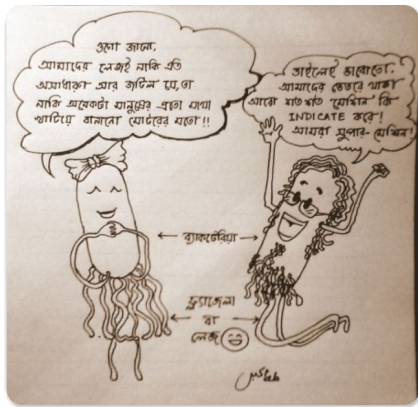 ওগো জানো,
আমাদের লেজই নাকি এত
অসাধারণ আর জটিল যে, তা
নাকি অনেকটা মানুষের এতো মাথা
খাটিয়ে বানানো মোটরের মতো!!
তাইলেই ভাবোতো,
আমাদের ভেতরে থাকা
আরো শত শত মেশিন কি
INDICATE করে!
আমরা সুপার-মেশিন!
ব্যাকটেরিয়া
ফ্ল্যাজেলা
বা
লেজ